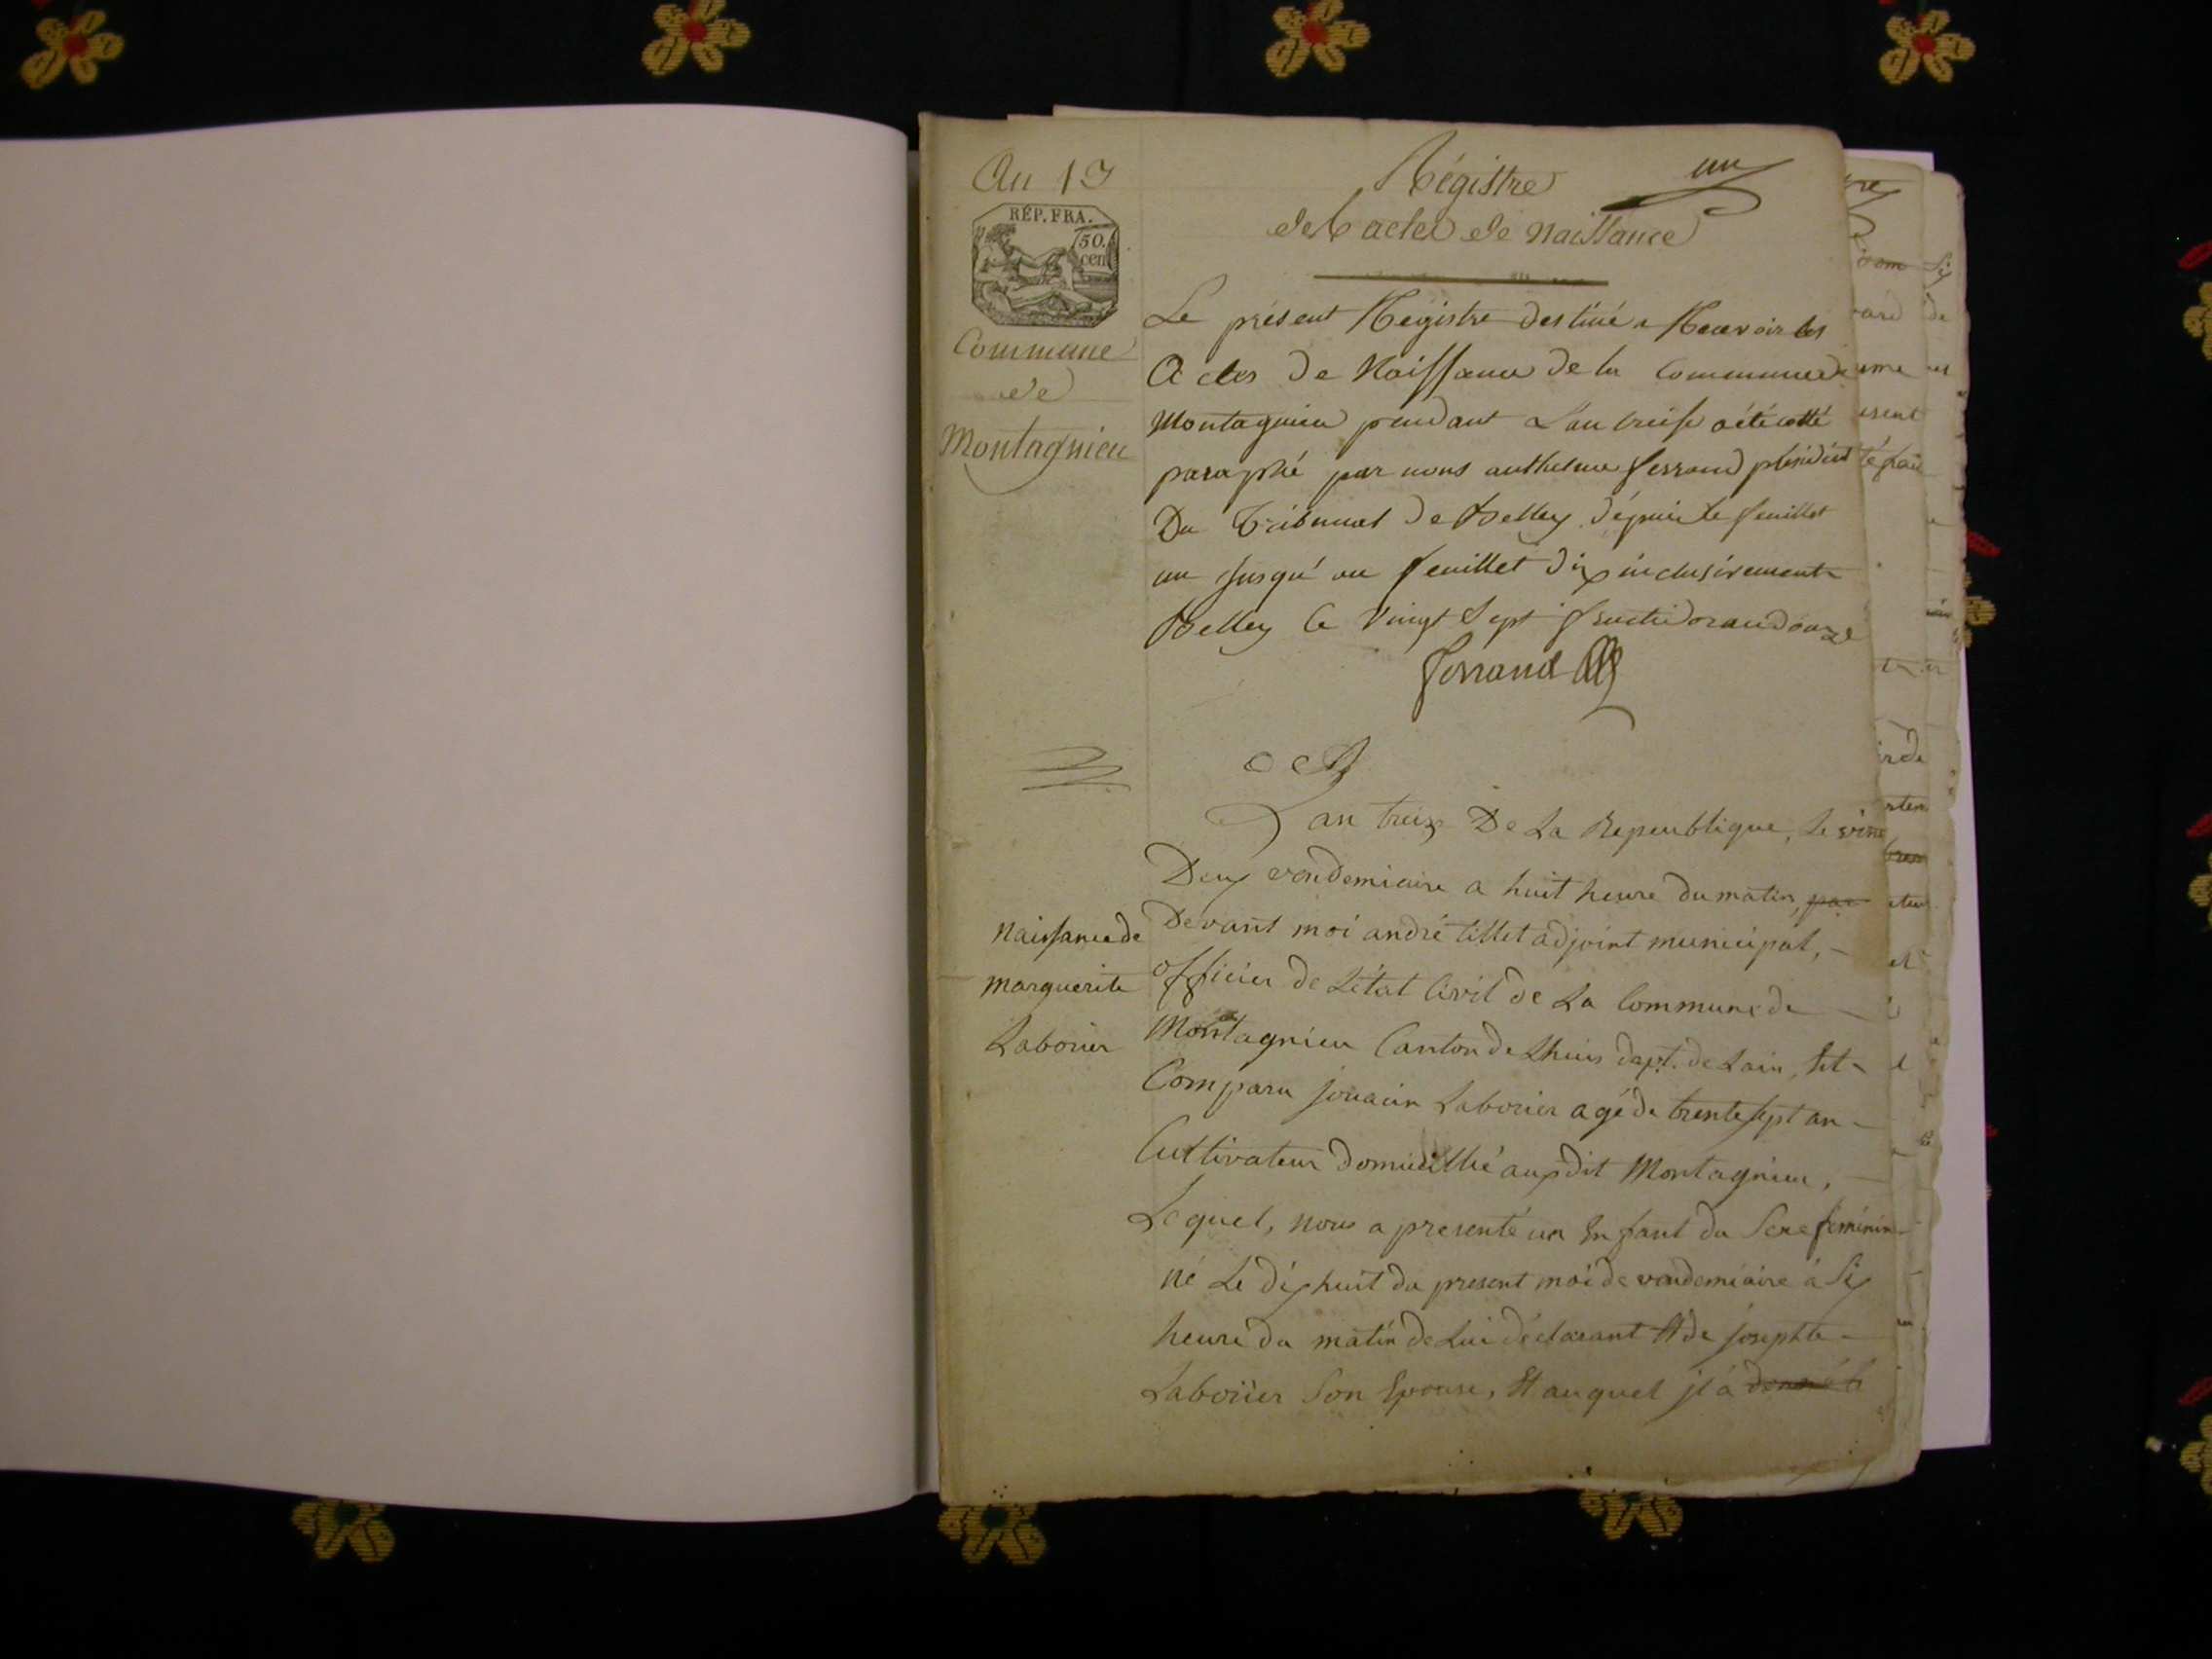 An 13
RÉP. FRA.
50.
cen
Commune
de
Montagnieu
un
Régistre
des actes de naissance
Le présent Registre destiné a Recevoir les
Actes de Naissance de la Commune de
Montagnieu pendant L'an treise a été cotté
paraphé par nous anthelme ferrand président
Du Tribunal de Belley dépuis le feuillet
un Jusqu'au feuillet dix inclusivement
Belley le Vingt Sept fructidor an douze
Ferrand
naissance de
marguerite
Laboüer
L'an treize De La Republique, le vint
Deux vendemiaire a huit heure du matin, par
Devant moi andré tillet adjoint municipal,
officier de L'état Civil de La Commune de
Montagnieu Canton de Lhuis dept. de Lain, Est
Comparu Laboüer agé de trente sept an
Cultivateur domicillié audit Montagnieu,
Lequel, nous a presenté un Enfant du Sexe féminin
né Le dix huit du present moi de vendemiaire à Six
heure du matin de Lui déclarant Et de josephte
Laboüer Son Epouse, Et auquel jl a donné le